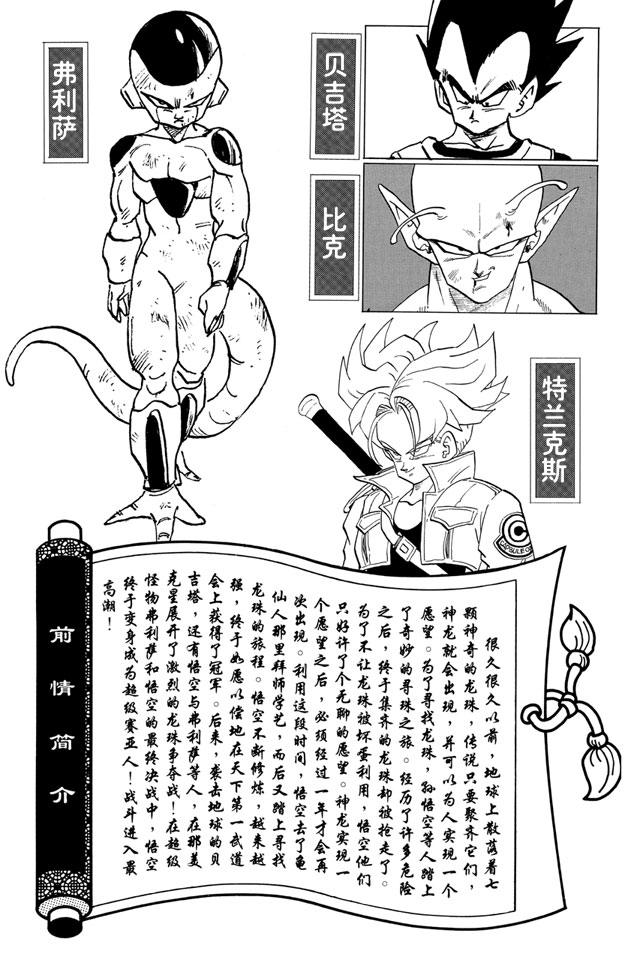 贝吉塔
弗利萨
比克
特兰克斯
CAPSULE
很久很久以前，地球上散落着七
颗神奇的龙珠，传说只要聚齐它们，
神龙就会出现，并可以为人实现一个
愿望。为了寻找龙珠，孙悟空等人踏上
了奇妙的寻珠之旅。经历了许多危险
之后，终于集齐的龙珠却被抢走了。
为了不让龙珠被坏蛋利用，悟空他们
只好许了个无聊的愿望。神龙实现一
个愿望之后，必须经过一年才会再
次出现。利用这段时间，悟空去了龟
仙人那里拜师学艺，而后又踏上寻找
龙珠的旅程。悟空不断修炼，越来越
强，终于如愿以偿地在天下第一武道
会上获得了冠军。后来，袭击地球的贝
吉塔，还有悟空与弗利萨等人，在那美
克星展开了激烈的龙珠争夺战！在超级
怪物弗利萨和悟空的最终决战中，悟空
终于变身成为超级赛亚人！战斗进入最
高潮！
前情简介